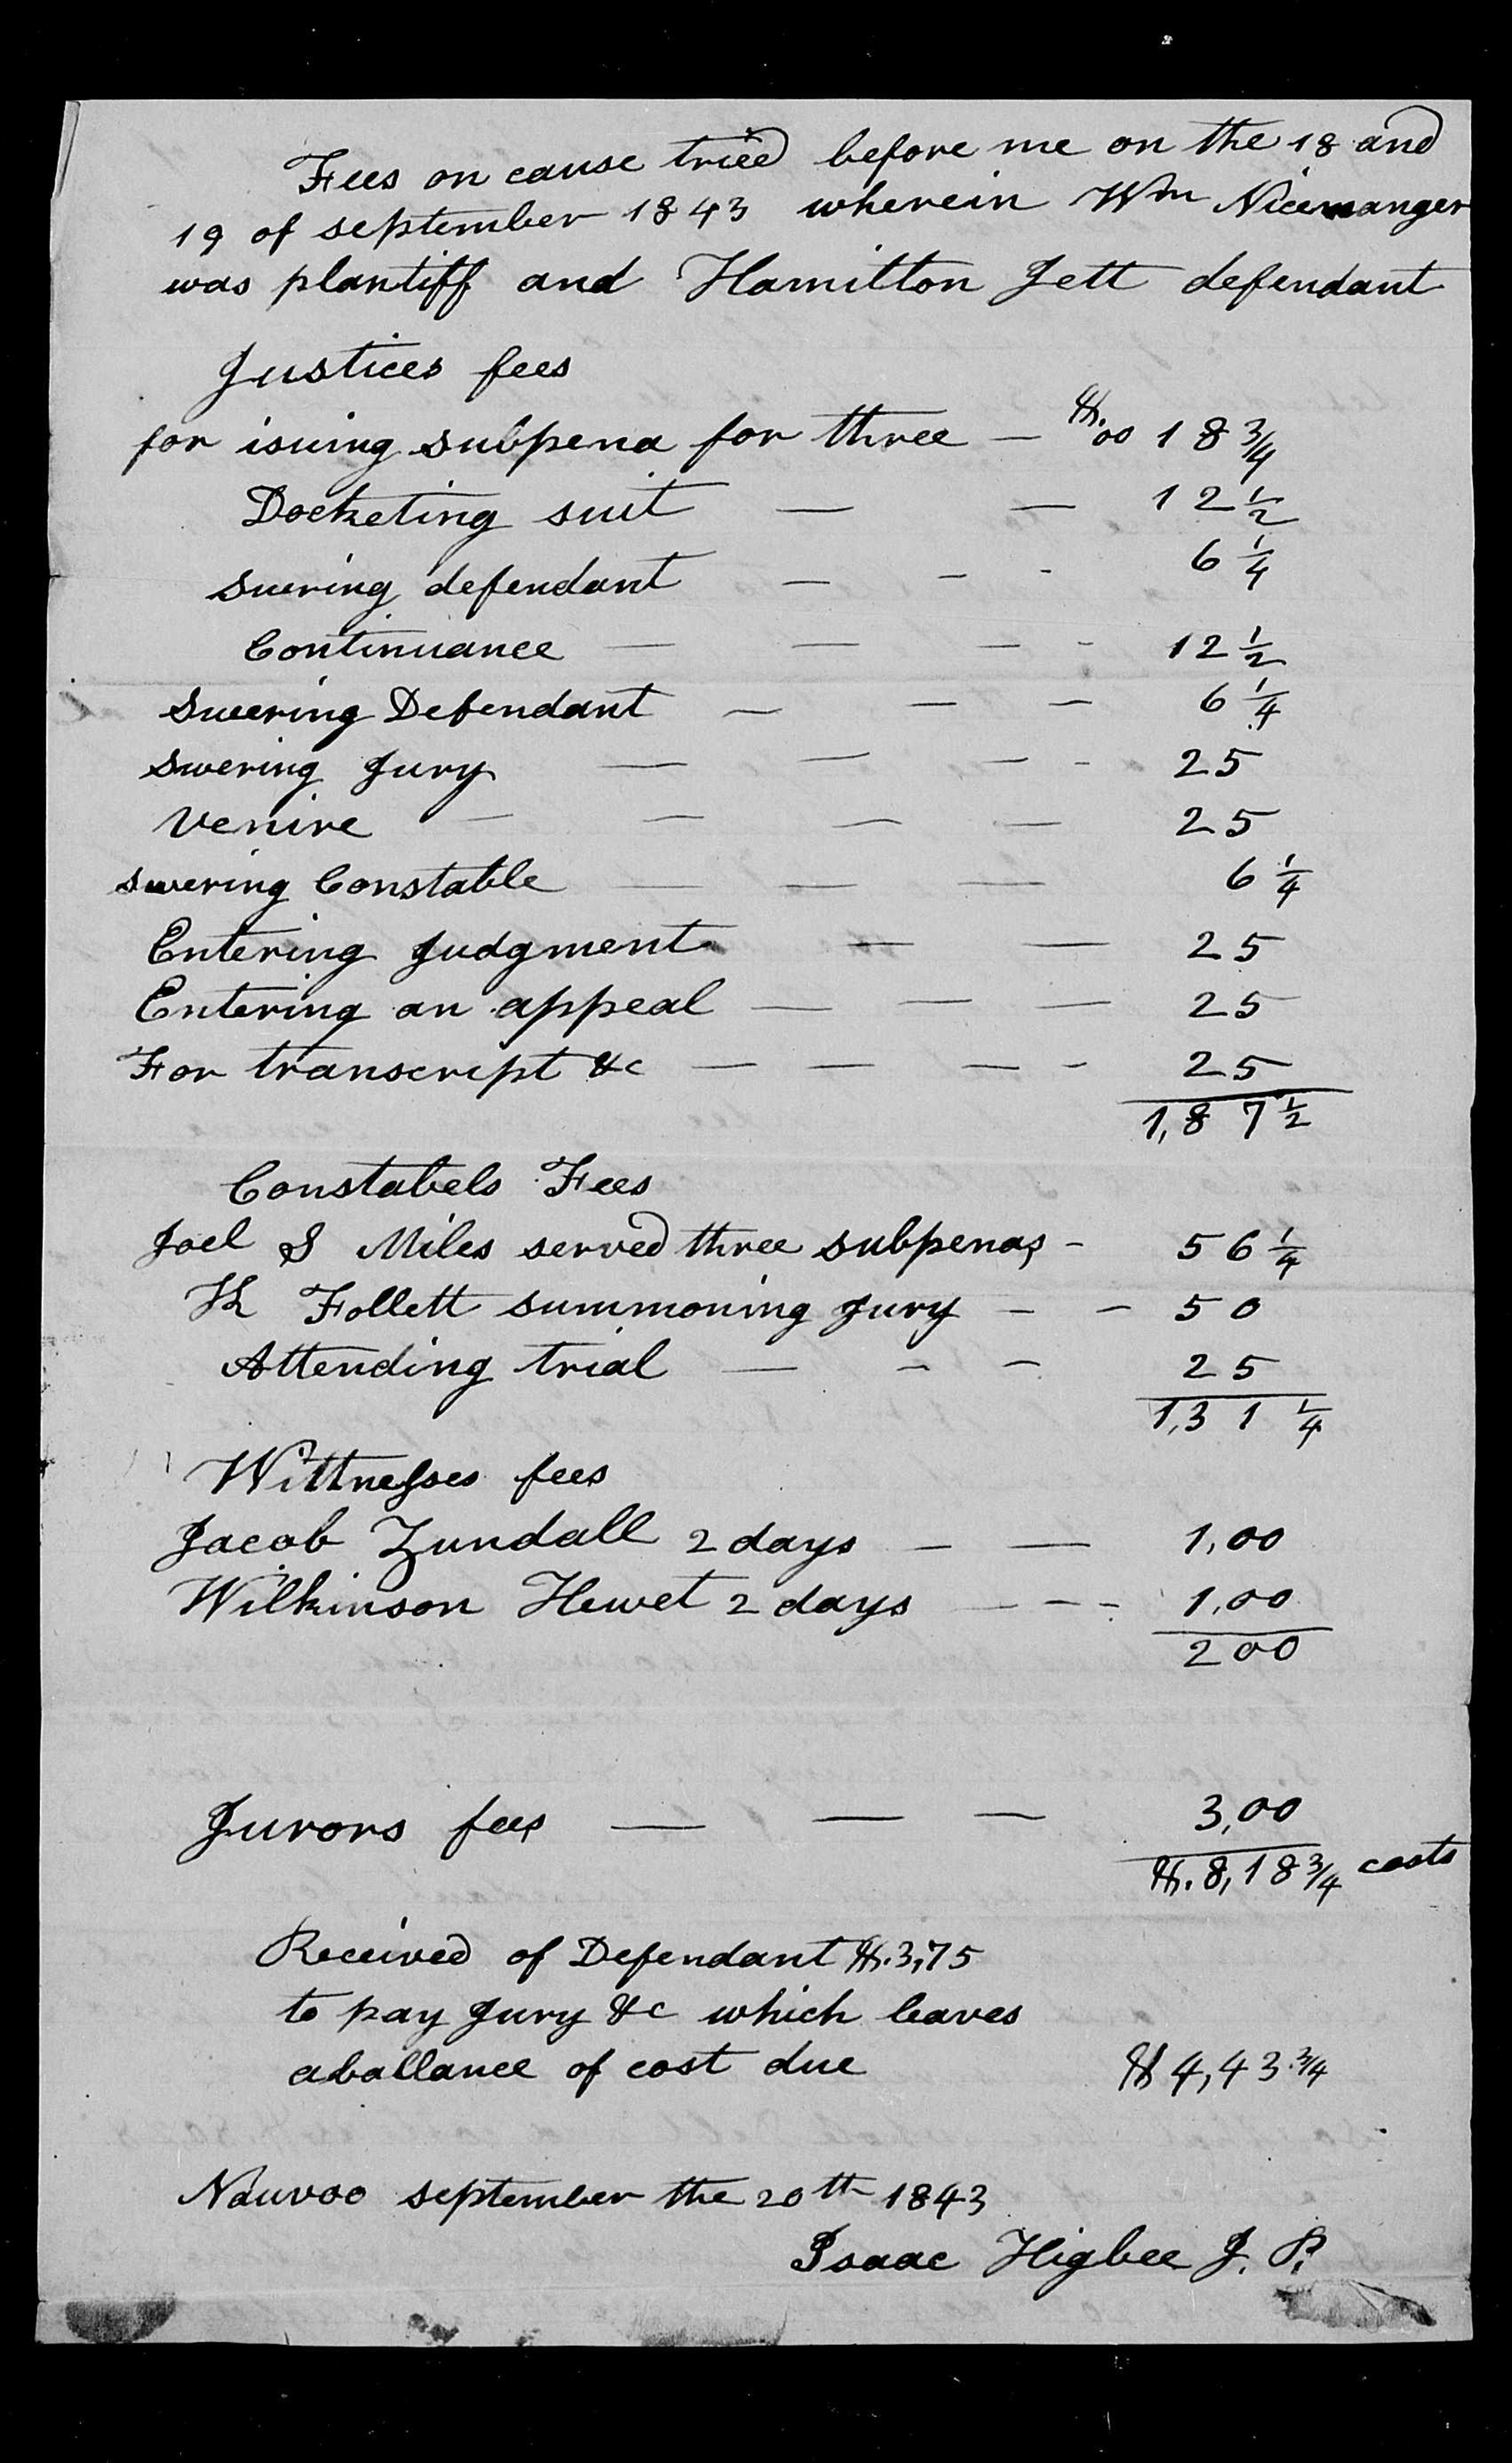 Fees on cause tried before me on the 18 and
19 of september 1843 wherein Wm Nicemanger
was plantiff and Hamilton Jett defendant
Justices fees
for isuing subpena for three — $.00 18 3/4
Docketing suit — — 12 1/2
Swering defendant — - - 6 1/4
Continuance — — - - 12 1/2
Swering Defendant — — — 6 1/4
Swering Jury — — - - 25
Venire — — — — 25
Swering Constable — — — 6 1/4
Entering Judgment — — 25
Entering an appeal — — — 25
For transcript &c — — — - 25
1,87 1/2
Constabels Fees
Joel S Miles served three subpenas - 56 1/4
K Follett summoning Jury - - 50
Attending trial — - - 25
1,31 1/4
Wittnesses fees
Jacob Zundall 2 days — — 1,00
Wilkinson Hewet 2 days — - - 1,00
200
Jurors fees — — — 3,00
$.8,18 3/4 costs
Received of Defendant $.3,75
to pay Jury &c which leaves
a ballance of cost due $4,43 3/4
Nauvoo september the 20th 1843
Isaac Higbee J. P.